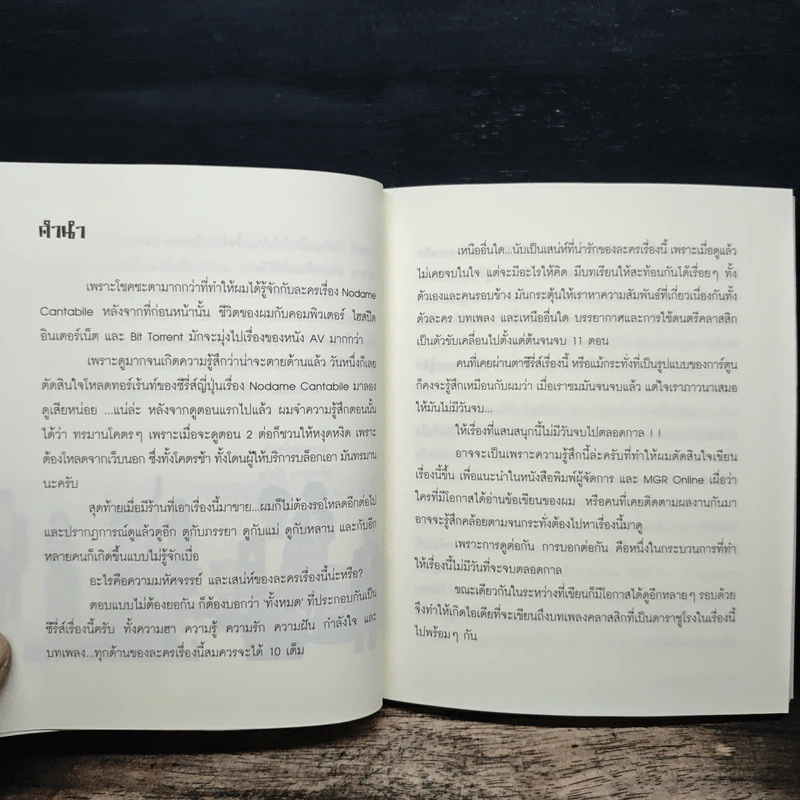 คำนำ
เพราะโชคชะตามากกว่าที่ทำให้ผมได้รู้จักกับละครเรื่อง Nodame
Cantabile หลังจากที่ก่อนหน้านั้น ชีวิตของผมกับคอมพิวเตอร์ ไฮสปีด
อินเตอร์เน็ต และ Bit Torrent มักจะมุ่งไปเรื่องของหนัง AV มากกว่า
เพราะดูมากจนเกิดความรู้สึกว่าน่าจะตายด้านแล้ว วันหนึ่งก็เลย
ตัดสินใจโหลดทอร์เร้นท์ของซีรี่ส์ญี่ปุ่นเรื่อง Nodame Cantabile มาลอง
ดูเสียหน่อย ...แน่ล่ะ หลังจากดูตอนแรกไปแล้ว ผมจำความรู้สึกตอนนั้น
ได้ว่า ทรมานโคตรๆ เพราะเมื่อจะดูตอน 2 ต่อก็ชวนให้หงุดหงิด เพราะ
ต้องโหลดจากเว็บนอก ซึ่งทั้งโคตรช้า ทั้งโดนผู้ให้บริการบล็อกเอา มันทรมาน
นะครับ
สุดท้ายเมื่อมีร้านที่เอาเรื่องนี้มาขาย...ผมก็ไม่ต้องรอโหลดอีกต่อไป
และปรากฏการณ์ดูแล้วดูอีก ดูกับภรรยา ดูกับแม่ ดูกับหลาน และกับอีก
หลายคนก็เกิดขึ้นแบบไม่รู้จักเบื่อ
อะไรคือความมหัศจรรย์ และเสน่ห์ของละครเรื่องนี้น่ะหรือ?
ตอบแบบไม่ต้องยอกัน ก็ต้องบอกว่า 'ทั้งหมด' ที่ประกอบกันเป็น
ซีรี่ส์เรื่องนี้ครับ ทั้งความฮา ความรู้ ความรัก ความฝัน กำลังใจ และ
บทเพลง...ทุกด้านของละครเรื่องนี้สมควรจะได้ 10 เต็ม
เหนืออื่นใด...นับเป็นเสน่ห์ที่น่ารักของละครเรื่องนี้ เพราะเมื่อดูแล้ว
ไม่เคยจบในใจ แต่จะมีอะไรให้คิด มีบทเรียนให้สะท้อนกันได้เรื่อยๆ ทั้ง
ตัวเองและคนรอบข้าง มันกระตุ้นให้เราหาความสัมพันธ์ที่เกี่ยวเนื่องกันทั้ง
ตัวละคร บทเพลง และเหนืออื่นใด บรรยากาศและการใช้ดนตรีคลาสสิก
เป็นตัวขับเคลื่อนไปตั้งแต่ต้นจนจบ 11 ตอน
คนที่เคยผ่านตาซีรี่ส์เรื่องนี้ หรือแม้กระทั่งที่เป็นรูปแบบของการ์ตูน
ก็คงจะรู้สึกเหมือนกับผมว่า เมื่อเราชมมันจนจบแล้ว แต่ใจเราภาวนาเสมอ
ให้มันไม่มีวันจบ...
ให้เรื่องที่แสนสนุกนี้ไม่มีวันจบไปตลอดกาล ! !
อาจจะเป็นเพราะความรู้สึกนี้ล่ะครับที่ทำให้ผมตัดสินใจเขียน
เรื่องนี้ขึ้น เพื่อแนะนำในหนังสือพิมพ์ผู้จัดการ และ MGR Online เผื่อว่า
ใครที่มีโอกาสได้อ่านข้อเขียนของผม หรือคนที่เคยติดตามผลงานกันมา
อาจจะรู้สึกคล้อยตามจนกระทั่งต้องไปหาเรื่องนี้มาดู
เพราะการดูต่อกัน การบอกต่อกัน คือหนึ่งในกระบวนการที่ทำ
ให้เรื่องนี้ไม่มีวันที่จะจบตลอดกาล
ขณะเดียวกันในระหว่างที่เขียนก็มีโอกาสได้ดูอีกหลายๆ รอบด้วย
จึงทำให้เกิดไอเดียที่จะเขียนถึงบทเพลงคลาสสิกที่เป็นดาราชูโรงในเรื่องนี้
ไปพร้อมๆ กัน